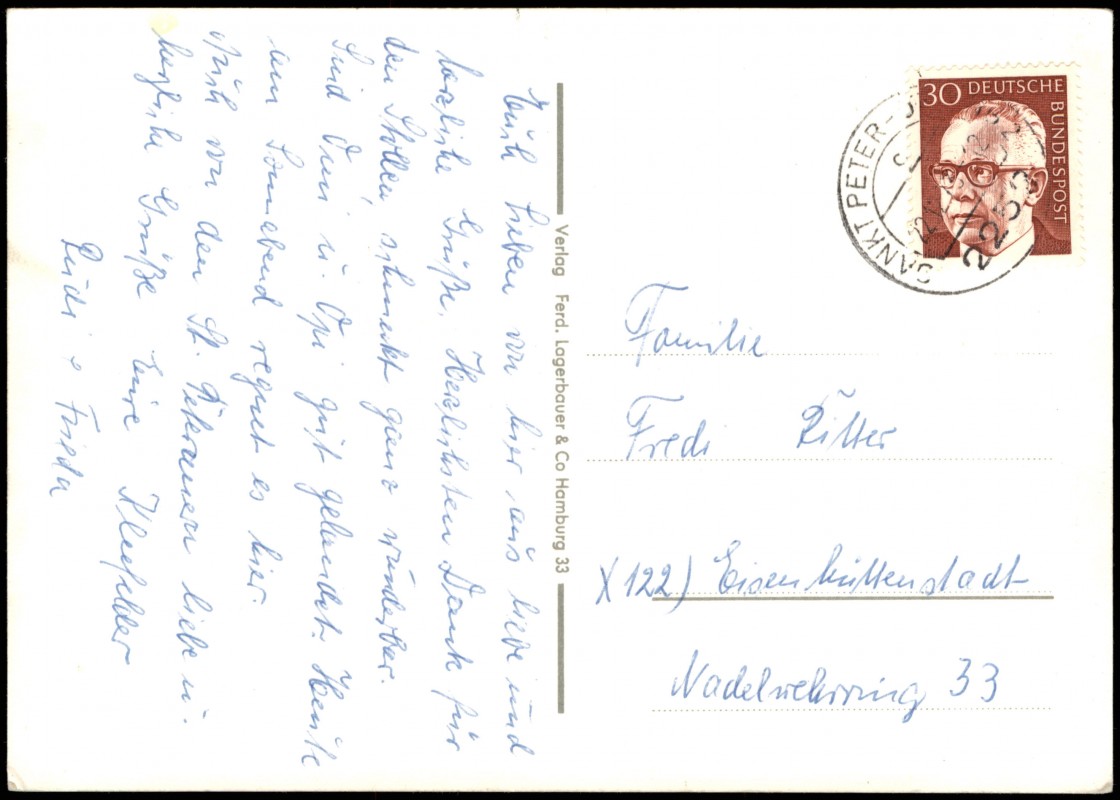 Euch Lieben von hier aus liebe und
herzliche Grüße, Herzlichsten Dank für
den Stollen, schmeckt ganz wunderbar.
Sind Omi u. Opi gut gelandet. Heute
am Sonnabend regnet es hier.
Euch von den St. Peteranern liebe u.
herzliche Grüße Eure
Rudi & Frieda
Verlag Ferd. Lagerbauer & Co Hamburg 33
30 DEUTSCHE
BUNDESPOST
SANKT PETER-
2252
Familie
Fredi Ritter
X 122) Eisenhüttenstadt
Nadelwehrring 33